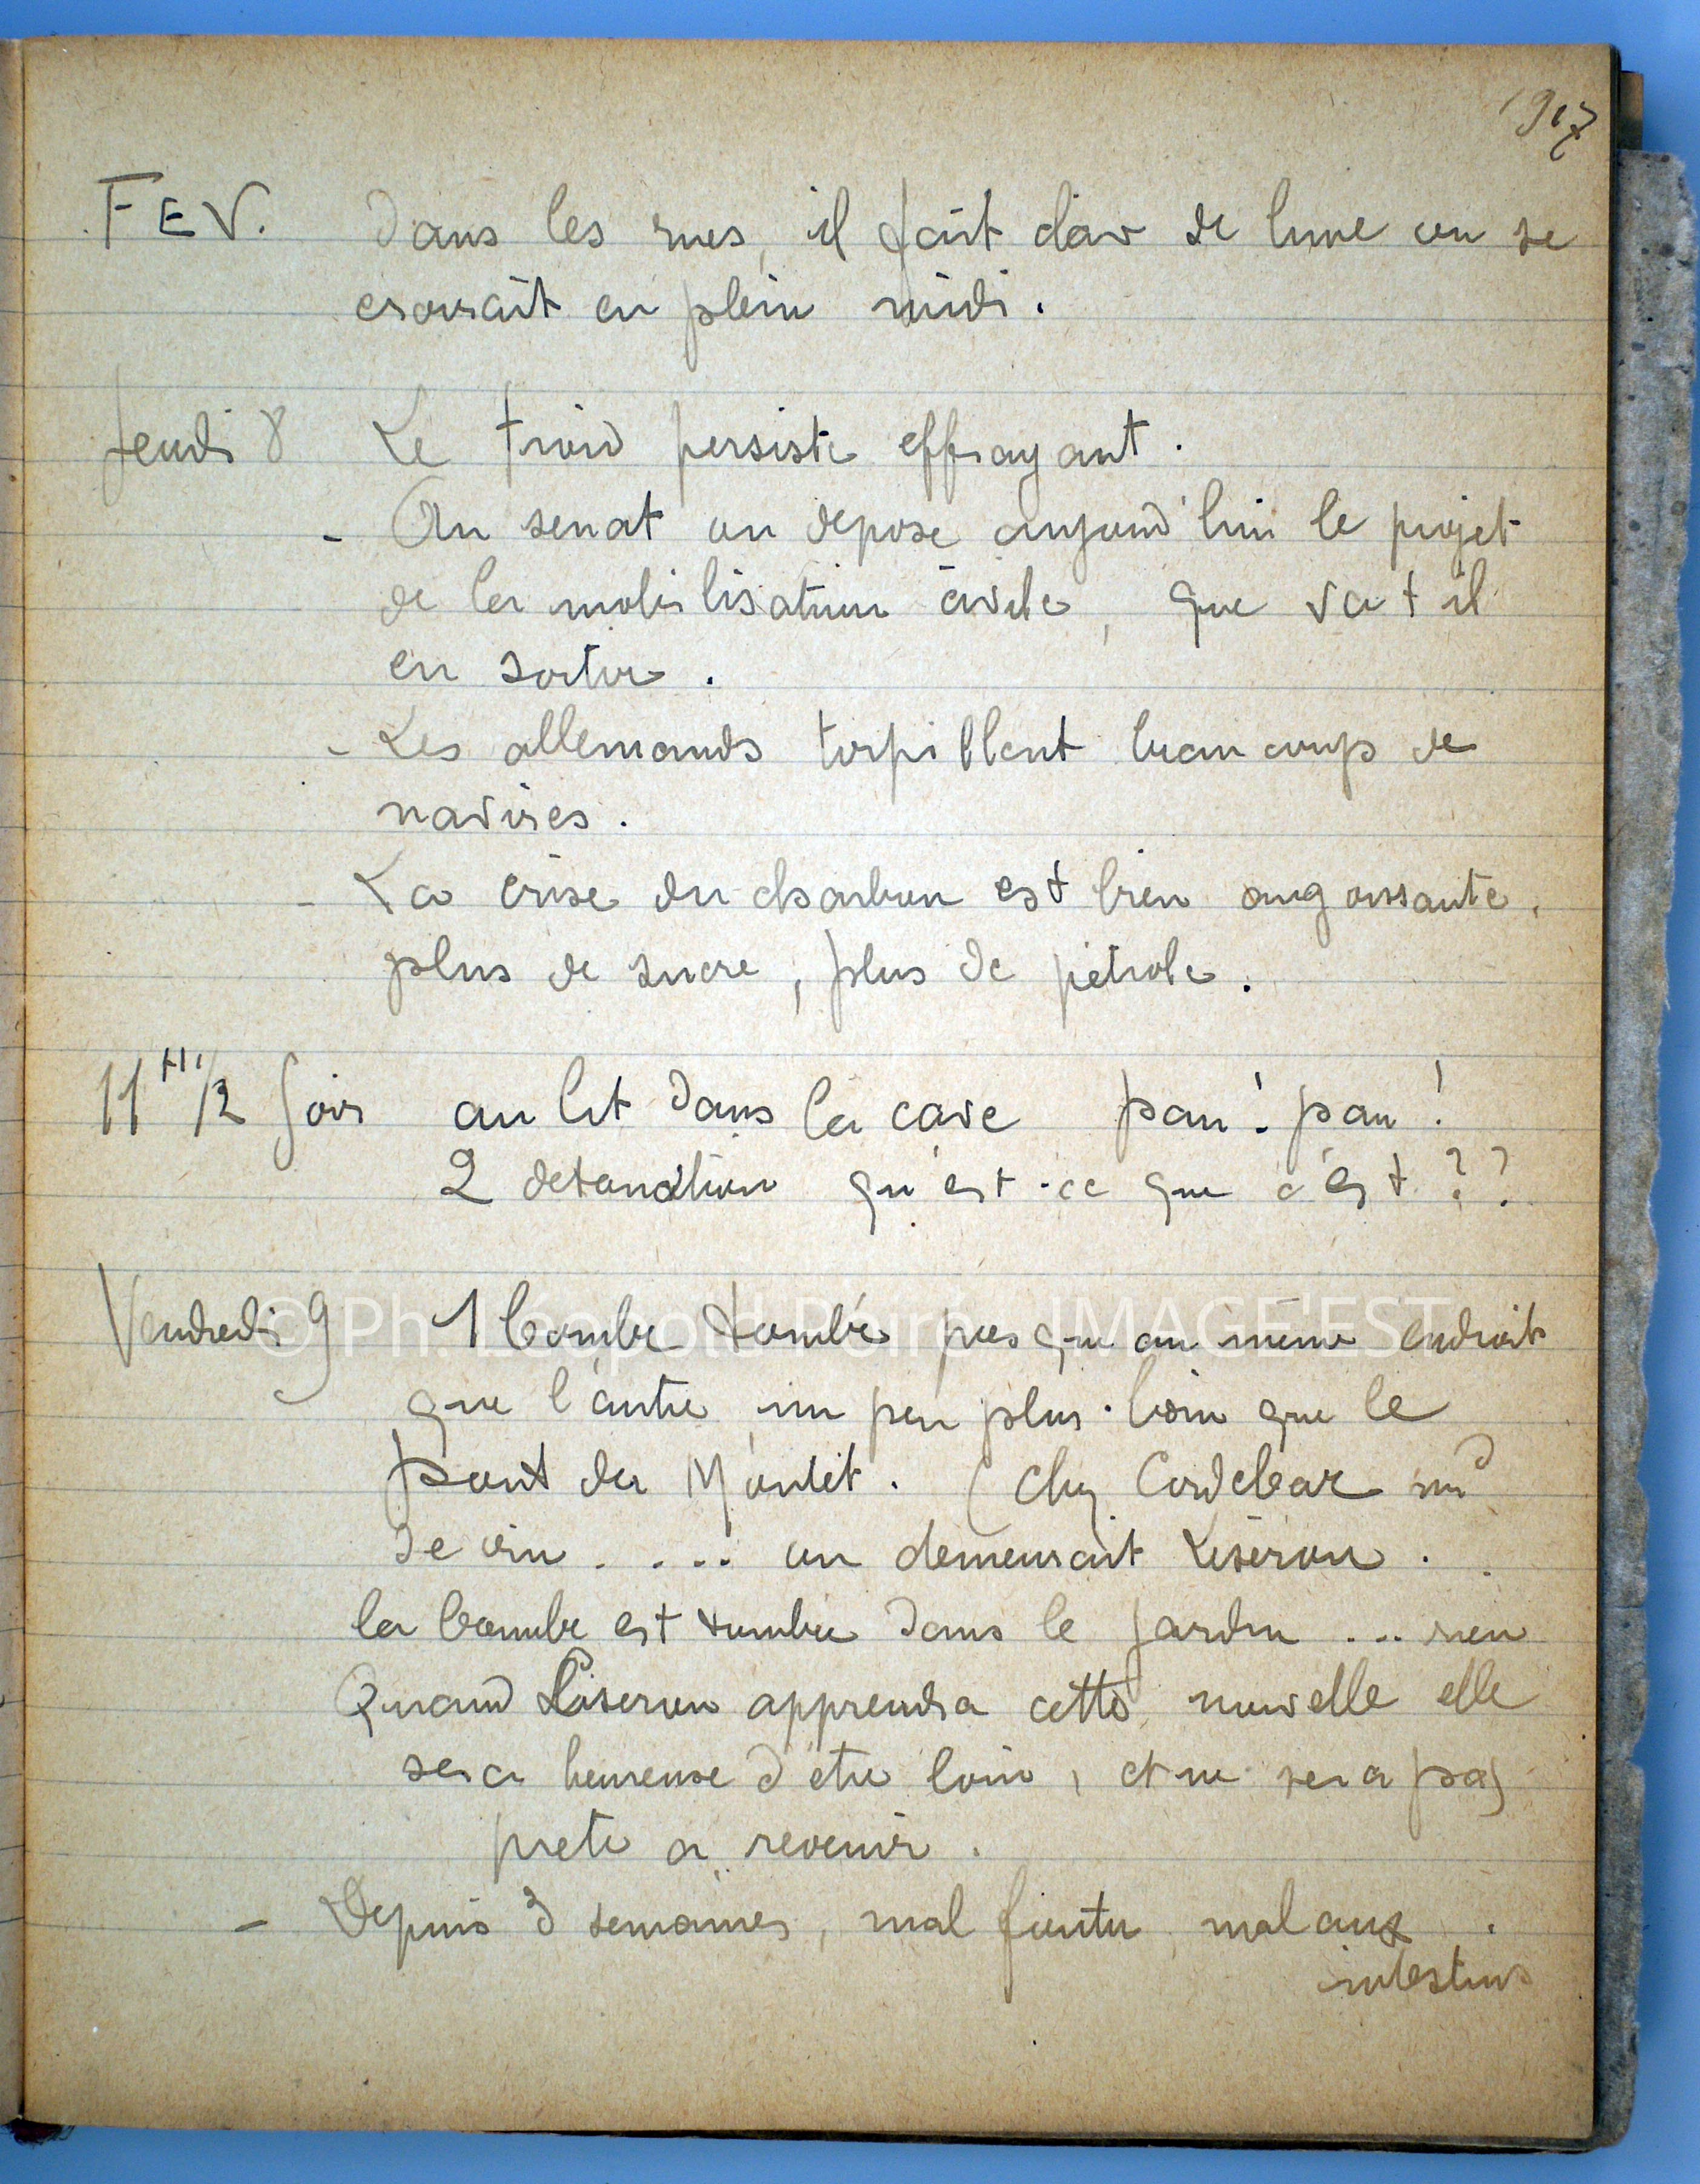 1917
FEV. Dans les rues, il fait clair de lune on se
croirait en plein midi.
Jeudi 8 Le froid persiste effrayant.
- Au senat on depose aujourd'hui le projet
de la mobilisation civile, que va t il
en sortir.
- Les allemands torpillent beaucoup de
navires.
- La crise du charbon est bien angoissante,
plus de sucre, plus de pétrole.
11 H 1/2 Soir au lit dans la cave pan! pan!
2 detonation qu'est-ce que c'est ??
Vendredi 9 1 bombe tombée presque au même endroit
que l'autre, un peu plus loin que le
pont du Montet. (Chez Cordebar md
de vin .... ou demeurait Liseron.
la bombe est tombée dans le jardin ... rien
Quand Liseron apprendra cette nouvelle elle
sera heureuse d'etre loin, et ne sera pas
prete a revenir.
- Depuis 3 semaines, mal foutu, mal aux
intestins